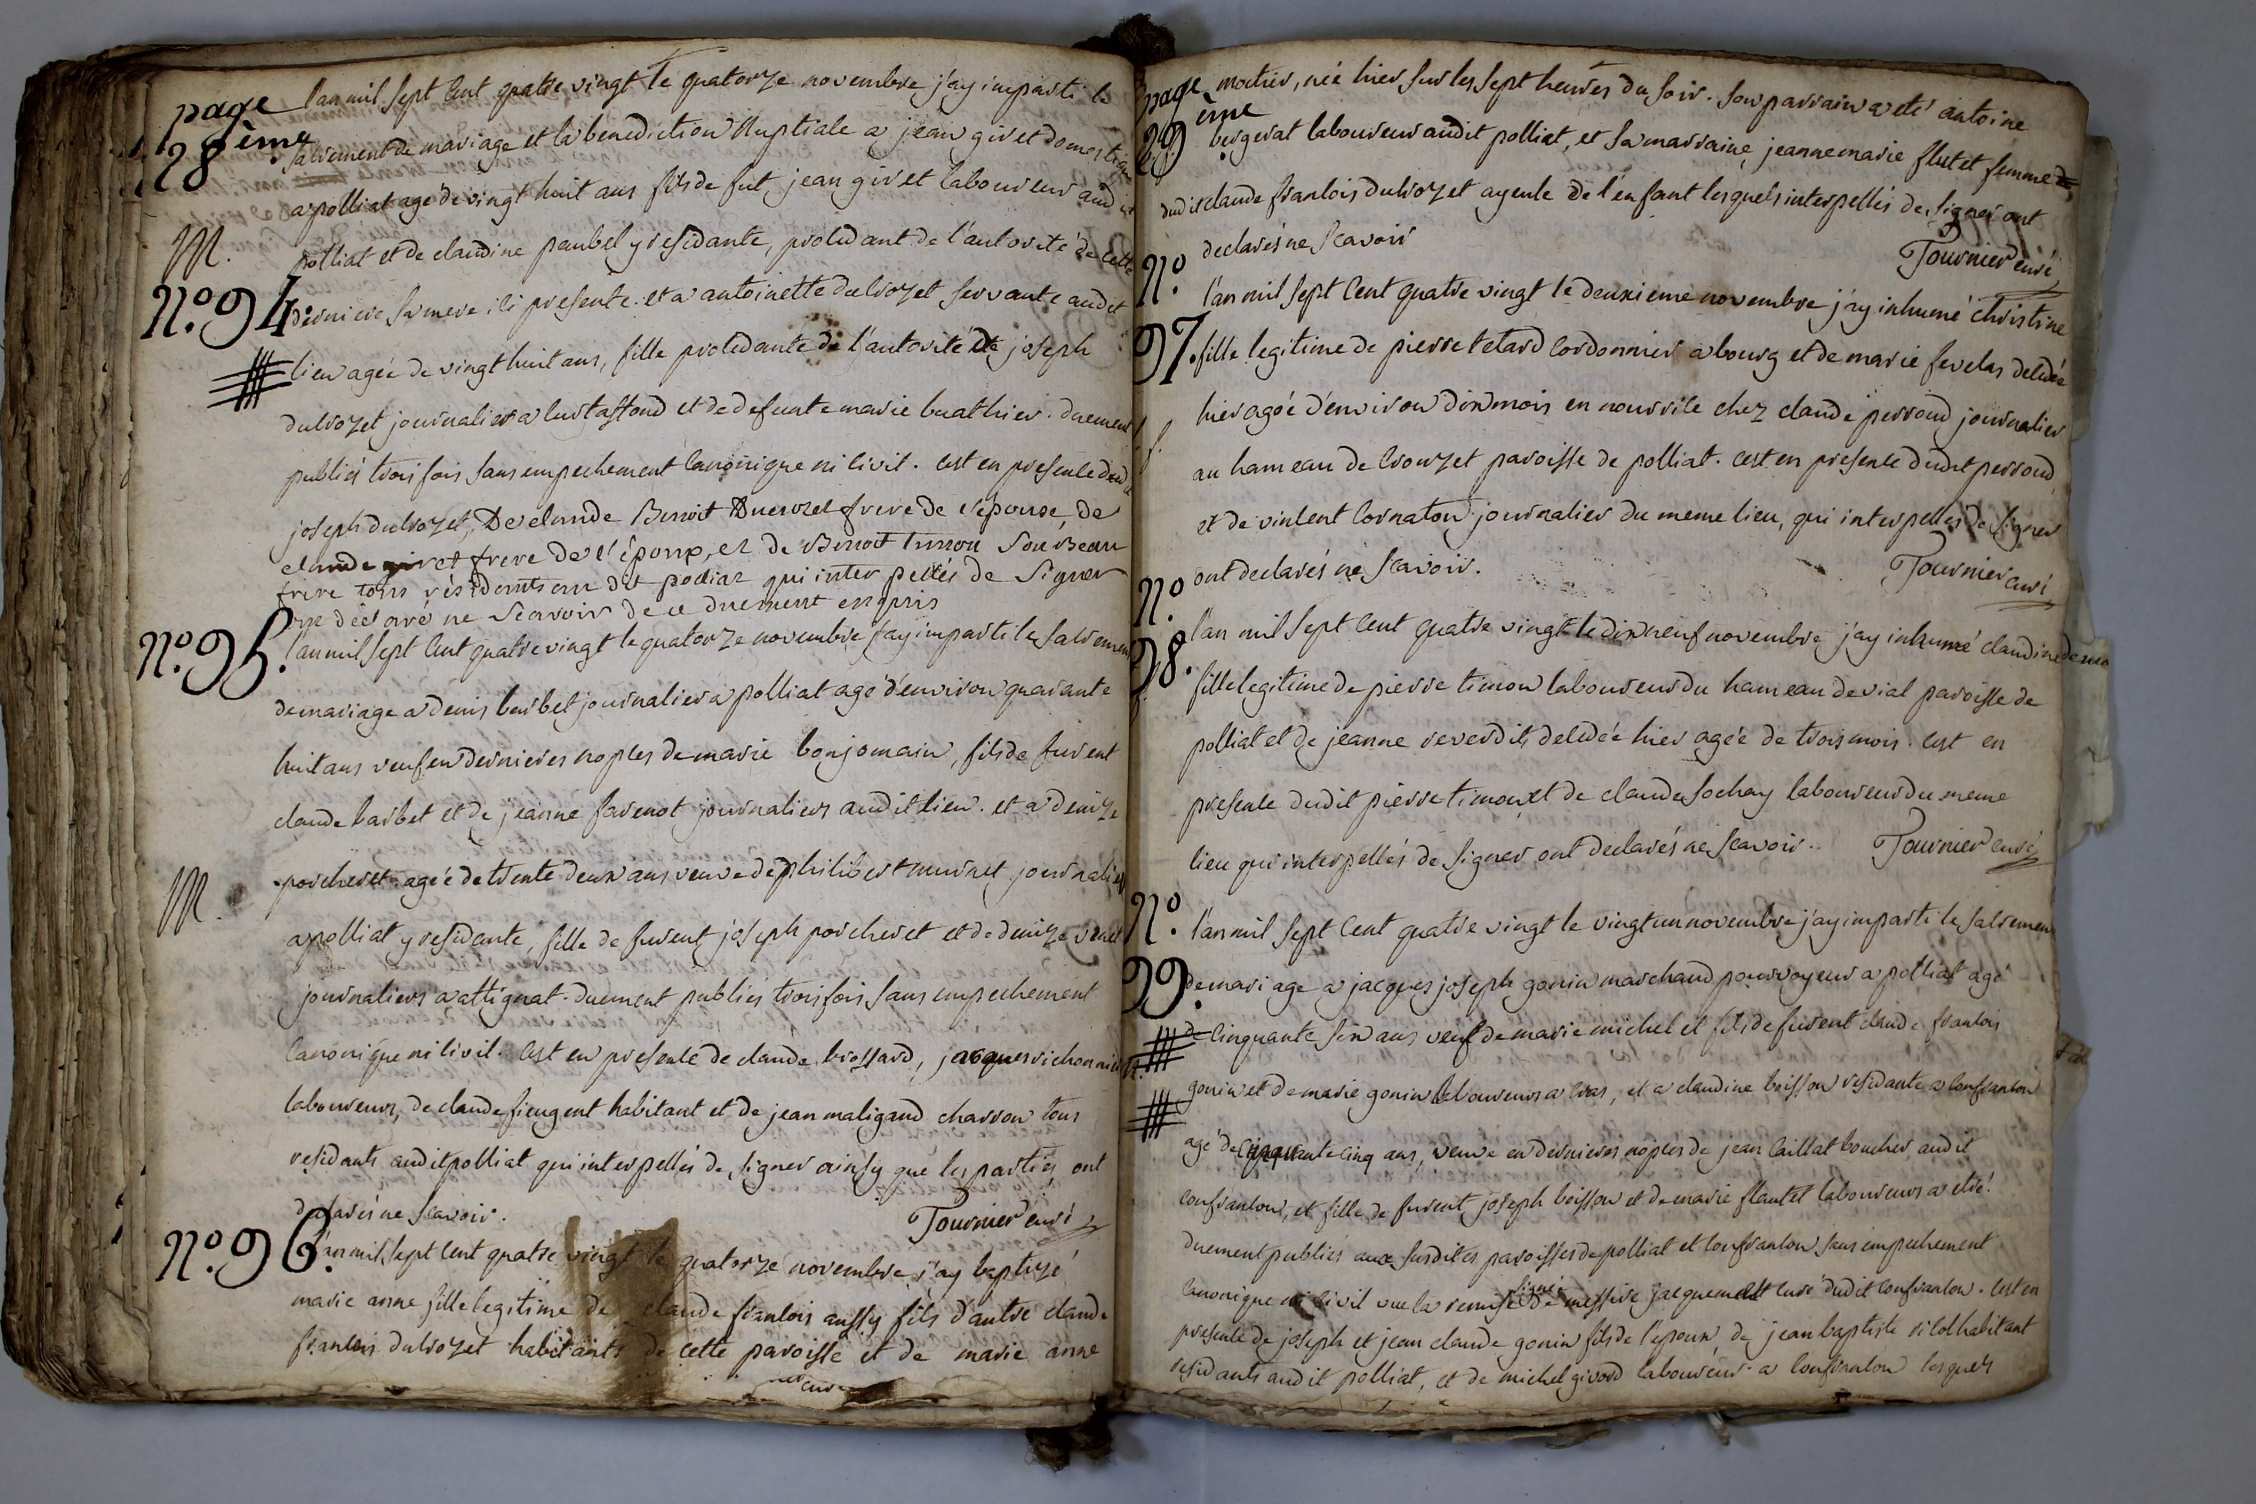 page 28 ème
l'an mil sept cent quatre vingt le quatorze novembre j'ay imparti le
sacrement de mariage et la benediction nuptiale a jean givet domestique
a polliat agé de vingt huit ans fils de fut jean givet laboureur audit
M.
polliat et de claudine paubel y residante, procedant de l'autorité de cette
N.o 94.
derniere sa mere ici presente. et a antoinette ducrozet servante audit
lieu agée de vingt huit ans, fille procedante de l'autorité de joseph
ducrozet journalier a curtaffond et de defunte marie buathier. duement
publiés trois fois sans empechement canonique ni civil. c'est en presence dud
joseph ducrozet, De claude Benoit Ducrozet frere de l'epouse, de
claude givet frere de l'époux, et de Benoit timon Son Beau
frere tous résidents au dit poliat qui interpellés de Signer
ont déclaré ne Scavoir de ce duement enquis
N.o 95.
l'an mil sept cent quatre vingt le quatorze novembre j'ay imparti le sacrement
de mariage a denis barbet journalier a polliat agé d'environ quarante
huit ans veuf en dernieres noples de marie bonjomain, fils de furent
claude barbet et de jeanne favenot journaliers audit lieu. et a denize
M.
porcheret agée de trente deux ans veuve de philibert mursey journalier
a polliat y residante, fille de furent joseph porcheret et de denize
journaliers a attignat. duement publiés trois fois sans empechement
canonique ni civil. c'est en presence de claude brossard, jacques vichonnier
laboureurs, de claude fieugent habitant et de jean maligand charron tous
residants audit polliat qui interpellés de signer ainsy que les parties ont
declarés ne scavoir.
Tournier curé
N.o 96.
l'an mil sept cent quatre vingt le quatorze novembre j'ay baptizé
marie anne fille legitime de claude francois aussy fils d'autre claude
francois ducrozet habitants de cette paroisse et de marie anne
page 29 ème
moutier, née hier sur les sept heures du soir. son parrain a eté antoine
bergerat laboureur audit polliat, et sa marraine jeanne marie flutet femme de
dudit claude francois ducrozet ayeule de l'enfant lesquels interpellés de signer ont
declarés ne scavoir
Tournier curé
N.o 97.
l'an mil sept cent quatre vingt le deuxieme novembre j'ay inhumé christine
fille legitime de pierre tetard cordonnier a bourg et de marie fevelas decedée
hier agée d'environ dix mois en nourrice chez claude perroud journalier
f.
au hameau de crouzet paroisse de polliat. c'est en presence dudit perroud
et de vincent cornaton journalier du meme lieu, qui interpellés de signer
ont declarés ne scavoir.
Tournier curé
N.o 98.
l'an mil sept cent quatre vingt le dix neuf novembre j'ay inhumé claudine
fille legitime de pierre timon laboureur du hameau de vial paroisse de
f.
polliat et de jeanne reverdit, decedée hier agée de trois mois. c'est en
presence dudit pierre timon, et de claude sochay laboureur du meme
lieu qui interpellés de signer ont declarés ne scavoir.. Tournier curé
N.o 99.
l'an mil sept cent quatre vingt le vingt un novembre j'ay imparti le sacrement
de mariage a jacques joseph gonin marchand pourvoyeur a polliat agé
de cinquante six ans veuf de marie michel et fils de furent claude francois
gonin et de marie gonin laboureurs a cras, et a claudine boisson residante a confrancon
agé de cinquante cinq ans, veuve en dernieres noples de jean caillat boucher audit
confrancon, et fille de furent joseph boisson et de marie flautet laboureurs a etré.
duement publiés aux susdites paroisses de polliat et confrancon sans empechement
canonique ni civil vue la remise signée de messire jacquemet curé dudit confrancon. c'est en
presence de joseph et jean claude gonin fils de l'epoux, de jean baptiste habitant
residants audit polliat, et de michel givord laboureur a confrancon lesquels